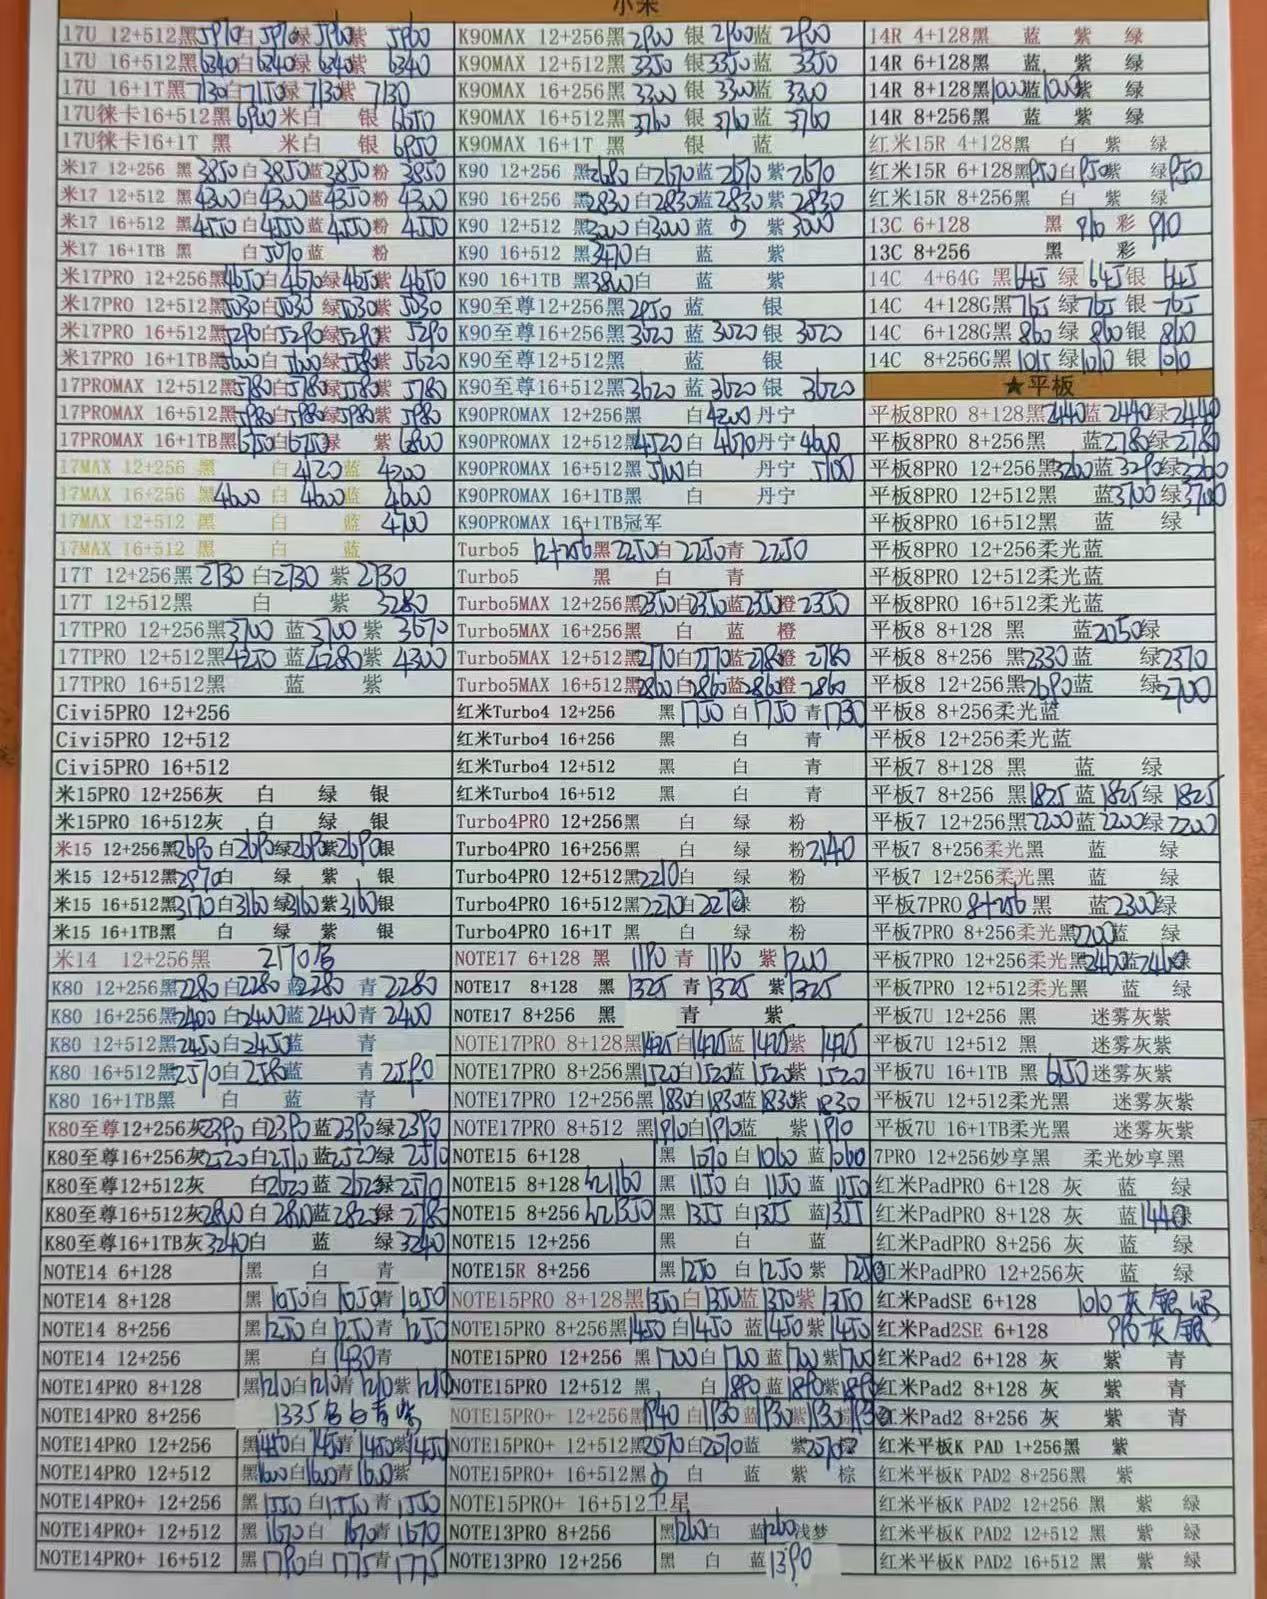 小米
17U 12+512黑5970白5970绿5960紫5960
17U 16+512黑6340白6340绿6340紫6340
17U 16+1T黑7130白7150绿7130紫7130
17U徕卡16+512黑6900 米白 银6650
17U徕卡16+1T黑 米白 银6950
米17 12+256 黑3850白3850蓝3850粉3850
米17 12+512 黑4300白4300蓝4350粉4300
米17 16+512 黑4550白4550蓝4550粉4550
米17 16+1TB 黑 白5070蓝 粉
米17PRO 12+256黑4650白4670绿4650紫4650
米17PRO 12+512黑5030白5030绿5030紫5030
米17PRO 16+512黑5290白5290绿5290紫5290
米17PRO 16+1TB黑5600白5600绿5580紫5620
17PROMAX 12+512黑5780白5780绿5780紫5780
17PROMAX 16+512黑5980白5980绿5980紫5980
17PROMAX 16+1TB黑6750白6750绿 紫6800
17MAX 12+256 黑 白4120蓝4200
17MAX 16+256 黑4600白4600蓝4600
17MAX 12+512 黑 白 蓝4700
17MAX 16+512 黑 白 蓝
17T 12+256黑2730白2730紫2730
17T 12+512黑 白 紫3280
17TPRO 12+256黑3700蓝3700紫3670
17TPRO 12+512黑4250蓝4280紫4300
17TPRO 16+512黑 蓝 紫
Civi5PRO 12+256
Civi5PRO 12+512
Civi5PRO 16+512
米15PRO 12+256灰 白 绿 银
米15PRO 16+512灰 白 绿 银
米15 12+256黑2690白2690绿2690紫2690银
米15 12+512黑2970白 绿 紫 银
米15 16+512黑3170白3160绿3160紫3160银
米15 16+1TB黑 白 绿 紫 银
米14 12+256黑 2170
K80 12+256黑2280白2280蓝2280青2280
K80 16+256黑2400白2400蓝2400青2400
K80 12+512黑2450白2450蓝 青
K80 16+512黑2570白2580蓝 青2590
K80 16+1TB黑 白 蓝 青
K80至尊12+256灰2390白2390蓝2390绿2390
K80至尊16+256灰2520白2510蓝2520绿2510
K80至尊12+512灰 白2620蓝2620绿2570
K80至尊16+512灰2800白2810蓝2820绿2780
K80至尊16+1TB灰3240白 蓝 绿3240
NOTE14 6+128 黑 白 青
NOTE14 8+128 黑1050白1050青1050
NOTE14 8+256 黑1250白1250青1250
NOTE14 12+256 黑 白1430青
NOTE14PRO 8+128 黑1210白1210青1210紫1210
NOTE14PRO 8+256 1335 白青紫
NOTE14PRO 12+256 黑1450白1450青1450紫1450
NOTE14PRO 12+512 黑1600白1600青1600紫
NOTE14PRO+ 12+256 黑1550白1550青1550
NOTE14PRO+ 12+512 黑1670白1670青1670
NOTE14PRO+ 16+512 黑1790白1775青1775
K90MAX 12+256黑2900银2960蓝2900
K90MAX 12+512黑3350银3350蓝3350
K90MAX 16+256黑3300银3300蓝3300
K90MAX 16+512黑3760银3760蓝3760
K90MAX 16+1T黑 银 蓝
K90 12+256 黑2680白2670蓝2670紫2670
K90 16+256 黑2830白2830蓝2830紫2830
K90 12+512 黑3000白3000蓝 紫3000
K90 16+512 黑3470白 蓝 紫
K90 16+1TB 黑3800白 蓝 紫
K90至尊12+256黑2950蓝 银
K90至尊16+256黑3020蓝3020银3020
K90至尊12+512黑 蓝 银
K90至尊16+512黑3620蓝3620银3620
K90PROMAX 12+256黑 白4200丹宁
K90PROMAX 12+512黑4520白4670丹宁4600
K90PROMAX 16+512黑5100白 丹宁5100
K90PROMAX 16+1TB黑 白 丹宁
K90PROMAX 16+1TB冠军
Turbo5 12+256黑2250白2250青2250
Turbo5 黑 白 青
Turbo5MAX 12+256黑2350白2350蓝2350橙2350
Turbo5MAX 16+256黑 白 蓝 橙
Turbo5MAX 12+512黑2770白2770蓝2780橙2780
Turbo5MAX 16+512黑2860白2860蓝2860橙2860
红米Turbo4 12+256 黑1750白1750青1730
红米Turbo4 16+256 黑 白 青
红米Turbo4 12+512 黑 白 青
红米Turbo4 16+512 黑 白 青
Turbo4PRO 12+256黑 白 绿 粉
Turbo4PRO 16+256黑 白 绿 粉2140
Turbo4PRO 12+512黑2210白 绿 粉
Turbo4PRO 16+512黑2270白2270绿 粉
Turbo4PRO 16+1T 黑 白 绿 粉
NOTE17 6+128 黑1190青1190紫1200
NOTE17 8+128 黑1325青1325紫1325
NOTE17 8+256 黑 青 紫
NOTE17PRO 8+128黑1475白1475蓝1475紫1475
NOTE17PRO 8+256黑1520白1520蓝1520紫1520
NOTE17PRO 12+256黑1830白1830蓝1830紫1830
NOTE17PRO 8+512 黑1910白1910蓝 紫1910
NOTE15 6+128 黑1070白1060蓝1060
NOTE15 8+128 1160 黑1150白1150蓝1150
NOTE15 8+256 1350 黑1355白1355蓝1355
NOTE15 12+256 黑 白 蓝
NOTE15R 8+256 黑1250白1250紫1250
NOTE15PRO 8+128黑1350白1350蓝1350紫1350
NOTE15PRO 8+256黑1450白1450蓝1450紫1450
NOTE15PRO 12+256 黑1700白1700蓝1700紫1700
NOTE15PRO 12+512 黑 白1890蓝1890紫1890
NOTE15PRO+ 12+256黑1940白1930蓝1930紫1930棕1930
NOTE15PRO+ 12+512黑2070白2070蓝 紫2070棕
NOTE15PRO+ 16+512黑 白 蓝 紫 棕
NOTE15PRO+ 16+512卫星
NOTE13PRO 8+256 黑1260白 蓝1260浅梦
NOTE13PRO 12+256 黑 白 蓝1390
14R 4+128黑 蓝 紫 绿
14R 6+128黑 蓝 紫 绿
14R 8+128黑1000蓝1000紫 绿
14R 8+256黑 蓝 紫 绿
红米15R 4+128黑 白 紫 绿
红米15R 6+128黑950白950紫 绿950
红米15R 8+256黑 白 紫 绿
13C 6+128 黑910彩910
13C 8+256 黑 彩
14C 4+64G 黑645绿645银645
14C 4+128G黑765绿765银765
14C 6+128G黑860绿860银860
14C 8+256G黑1015绿1010银1010
★平板
平板8PRO 8+128黑2440蓝2440绿2440
平板8PRO 8+256黑 蓝2780绿2780
平板8PRO 12+256黑3260蓝3290绿3260
平板8PRO 12+512黑 蓝3700绿3700
平板8PRO 16+512黑 蓝 绿
平板8PRO 12+256柔光蓝
平板8PRO 12+512柔光蓝
平板8PRO 16+512柔光蓝
平板8 8+128 黑 蓝2050绿
平板8 8+256 黑2330蓝 绿2370
平板8 12+256黑2690蓝 绿2700
平板8 8+256柔光蓝
平板8 12+256柔光蓝
平板7 8+128 黑 蓝 绿
平板7 8+256 黑1825蓝1825绿1825
平板7 12+256黑2200蓝2200绿2200
平板7 8+256柔光黑 蓝 绿
平板7 12+256柔光黑 蓝 绿
平板7PRO 8+256 黑 蓝2300绿
平板7PRO 8+256柔光黑2200蓝 绿
平板7PRO 12+256柔光黑2420蓝2400绿
平板7PRO 12+512柔光黑 蓝 绿
平板7U 12+256 黑 迷雾灰紫
平板7U 12+512 黑 迷雾灰紫
平板7U 16+1TB 黑6150迷雾灰紫
平板7U 12+512柔光黑 迷雾灰紫
平板7U 16+1TB柔光黑 迷雾灰紫
7PRO 12+256妙享黑 柔光妙享黑
红米PadPRO 6+128 灰 蓝 绿
红米PadPRO 8+128 灰 蓝1440绿
红米PadPRO 8+256 灰 蓝 绿
红米PadPRO 12+256灰 蓝 绿
红米PadSE 6+128 1010灰/银
红米Pad2SE 6+128 910灰/银
红米Pad2 6+128 灰 紫 青
红米Pad2 8+128 灰 紫 青
红米Pad2 8+256 灰 紫 青
红米平板K PAD 1+256黑 紫
红米平板K PAD2 8+256黑 紫
红米平板K PAD2 12+256 黑 紫 绿
红米平板K PAD2 12+512 黑 紫 绿
红米平板K PAD2 16+512 黑 紫 绿